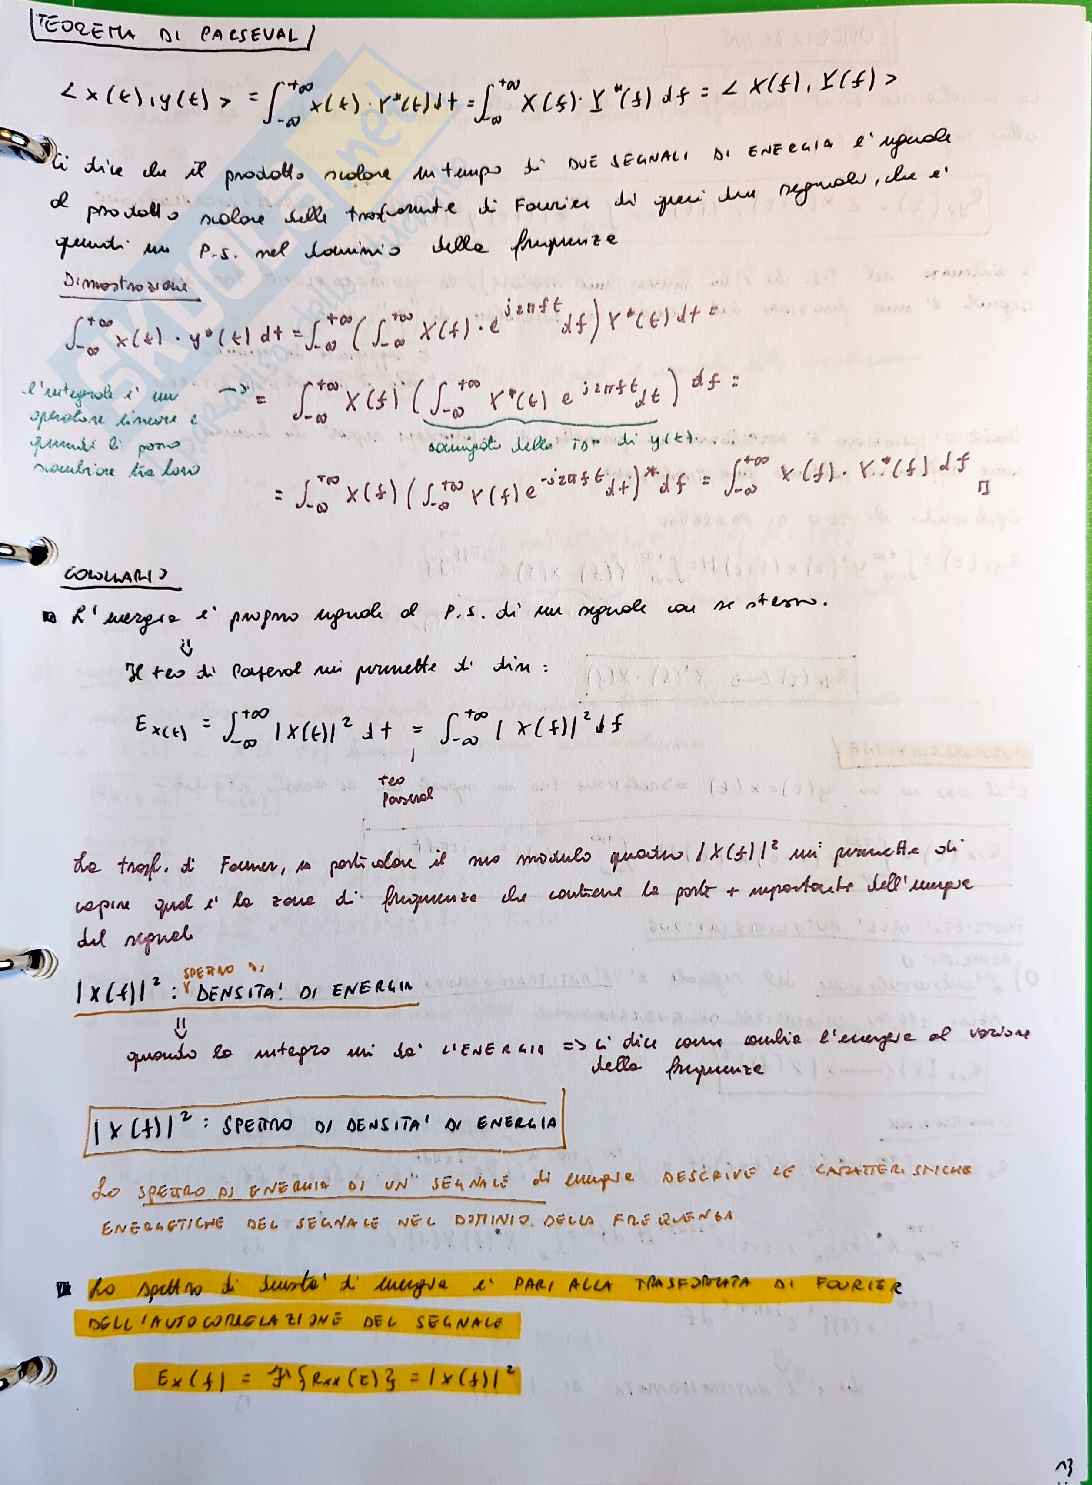 TEOREMA DI PARSEVAL
< x(t), y(t) > = ∫_{-∞}^{+∞} x(t) · Y*(t) dt = ∫_{-∞}^{+∞} X(f) · Y*(f) df = < X(f), Y(f) >
Ci dice che il prodotto scalare in tempo di DUE SEGNALI DI ENERGIA è uguale
al prodotto scalare delle trasformate di Fourier di quei due segnali, che è
quindi un P.S. nel dominio della frequenza
Dimostrazione
∫_{-∞}^{+∞} x(t) · y*(t) dt = ∫_{-∞}^{+∞} ( ∫_{-∞}^{+∞} X(f) · e^{j2πft} df ) Y*(t) dt =
l'integrale è un
operatore lineare e
quindi li posso
scambiare tra loro
→ = ∫_{-∞}^{+∞} X(f) ( ∫_{-∞}^{+∞} Y*(t) e^{j2πft} dt ) df =
coniugato della TDF di y(t)...
= ∫_{-∞}^{+∞} X(f) ( ∫_{-∞}^{+∞} Y(f) e^{-j2πft} dt )* df = ∫_{-∞}^{+∞} X(f) · Y*(f) df
COROLLARIO
L'energia è proprio uguale al P.S. di un segnale con se stesso.
⇓
Il teo di Parseval mi permette di dire:
E_{x(t)} = ∫_{-∞}^{+∞} |X(t)|² dt = ∫_{-∞}^{+∞} |X(f)|² df
teo
Parseval
La trasf. di Fourier, in particolare il suo modulo quadro |X(f)|² mi permette di
capire qual è la zona di frequenze che contiene la parte + importante dell'energia
del segnale
|X(f)|² : SPETTRO DI DENSITA' DI ENERGIA
⇓
quando la integro mi dà L'ENERGIA => ci dice come cambia l'energia al variare
della frequenza
|X(f)|² : SPETTRO DI DENSITA' DI ENERGIA
Lo SPETTRO DI ENERGIA DI UN SEGNALE di energia DESCRIVE LE CARATTERISTICHE
ENERGETICHE DEL SEGNALE NEL DOMINIO DELLA FREQUENZA
Lo spettro di densità di energia è PARI ALLA TRASFORMATA DI FOURIER
DELL'AUTOCORRELAZIONE DEL SEGNALE
Ex(f) = F{Rxx(τ)} = |X(f)|²
13